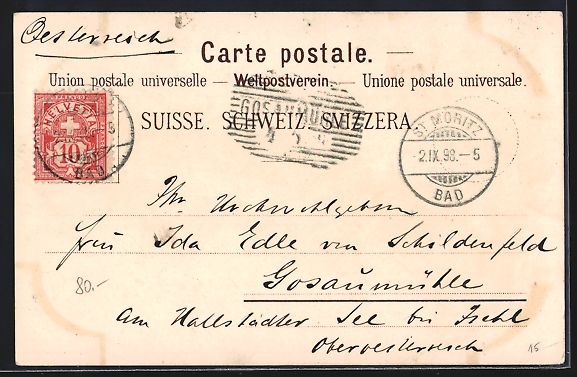 Oesterreich
Carte postale.
Union postale universelle — Weltpostverein — Unione postale universale.
SUISSE. SCHWEIZ. SVIZZERA.
HELVETIA
10
BAD
GOSAUMÜHLE
ST. MORITZ
-2.IX.98.-5
BAD
Ihr Hochwohlgeboren
Frau Ida Edle von Schildenfeld
Gosaumühle
am Hallstädter See bei Ischl
Oberoesterreich
80.-
15-